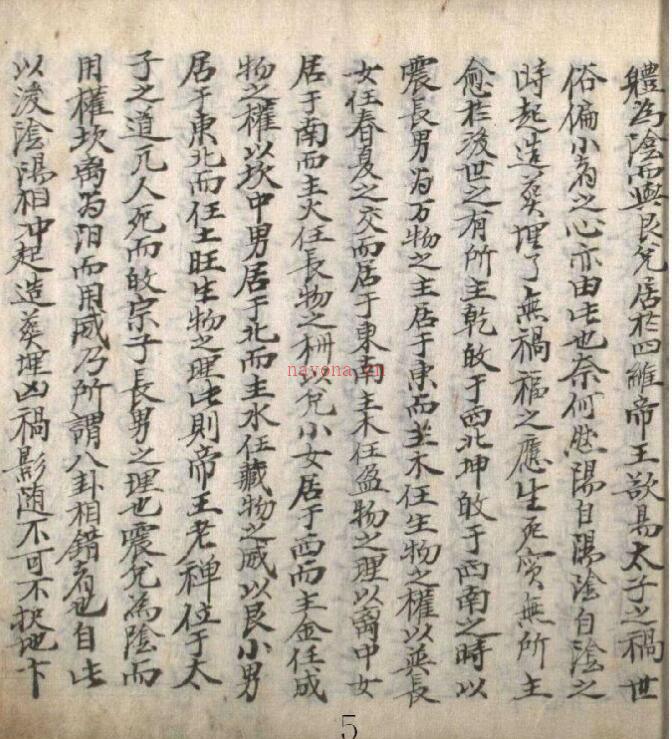 軆為陰而與艮兌居於四維帝王欲易太子之禍世
俗偏小者之心亦由此也奈何然陽自陽陰自陰之
時起造葬埋了無禍福之應生死實無所主
愈於後世之有所主乾放于西北坤放于西南之時以
震長男為万物之主居于東而主木任生物之權以巽長
女任春夏之交而居于東南主木任盈物之理以离中女
居于南而主火任長物之以兌小女居于西而主金任成
物之權以坎中男居于北而主水任藏物之威以艮小男
居于東北而任土旺生物之理此則帝王老禅位于太
子之道兀人死而放宗子長男之理也震兌為陰而
用權坎离为阳而用威乃所謂八卦相錯者也自此
以後陰陽相冲起造葬埋凶禍影随不可不択地卞
nayona.cn
5